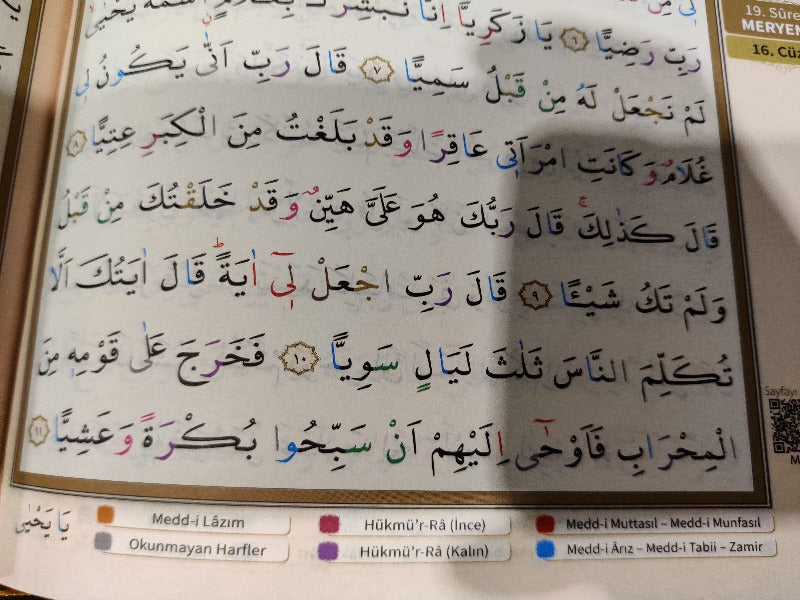 رَبِّ رَضِيًّا ﴿٦﴾ يَا زَكَرِيَّٓا اِنَّا نُبَشِّرُكَ بِغُلَامٍۨ اسْمُهُ يَحْيٰىۙ
لَمْ نَجْعَلْ لَهُ مِنْ قَبْلُ سَمِيًّا ﴿٧﴾ قَالَ رَبِّ اَنّٰى يَكُونُ ل۪ي
غُلَامٌ وَكَانَتِ امْرَاَت۪ي عَاقِرًا وَقَدْ بَلَغْتُ مِنَ الْكِبَرِ عِتِيًّا ﴿٨﴾
قَالَ كَذٰلِكَۚ قَالَ رَبُّكَ هُوَ عَلَيَّ هَيِّنٌ وَقَدْ خَلَقْتُكَ مِنْ قَبْلُ
وَلَمْ تَكُ شَيْـًٔا ﴿٩﴾ قَالَ رَبِّ اجْعَلْ ل۪ٓي اٰيَةًۜ قَالَ اٰيَتُكَ اَلَّا
تُكَلِّمَ النَّاسَ ثَلٰثَ لَيَالٍ سَوِيًّا ﴿١٠﴾ فَخَرَجَ عَلٰى قَوْمِه۪ مِنَ
الْمِحْرَابِ فَاَوْحٰٓى اِلَيْهِمْ اَنْ سَبِّحُوا بُكْرَةً وَعَشِيًّا ﴿١١﴾
يَا يَحْيٰى
Medd-i Lâzım
Hükmü'r-Râ (İnce)
Medd-i Muttasıl – Medd-i Munfasıl
Okunmayan Harfler
Hükmü'r-Râ (Kalın)
Medd-i Ârız – Medd-i Tabii – Zamir
19. Sûre
MERYEM
16. Cüz
Sayfayı